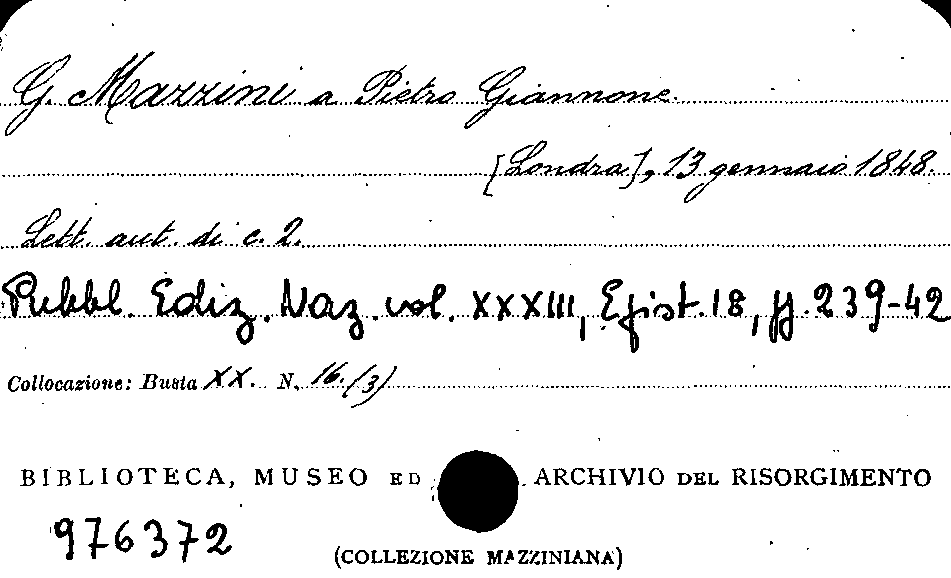 G. Mazzini a Pietro Giannone.
[Londra], 13 gennaio 1848.
Lett. aut. di c. 2.
Pubbl. Ediz. Naz. vol. XXXIII, Epist. 18, pp. 239-42
Collocazione: Busta XX. N. 16.(3)
BIBLIOTECA, MUSEO ED ARCHIVIO DEL RISORGIMENTO
976372
(COLLEZIONE MAZZINIANA)